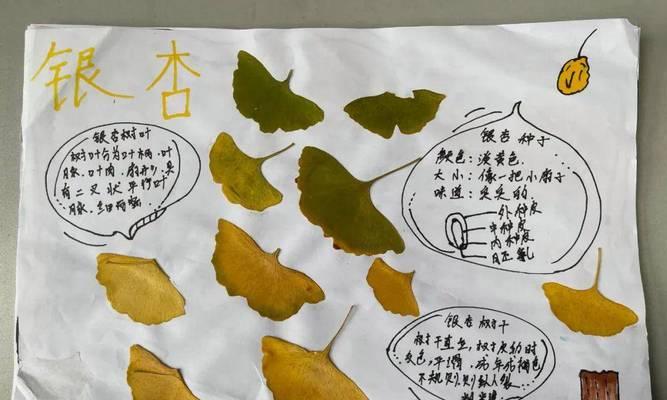 银杏
银杏树叶
树叶分为叶柄,叶
脉,叶肉,扇形,具
有二叉状平行叶
脉,
银杏种子
颜色:淡黄色
大小:像一把小扇子
味道:臭臭的
外种皮
中种皮
内种皮
胚乳
银杏树干
树干直立,树皮幼时
灰色,平滑,成年后褐色
不规则